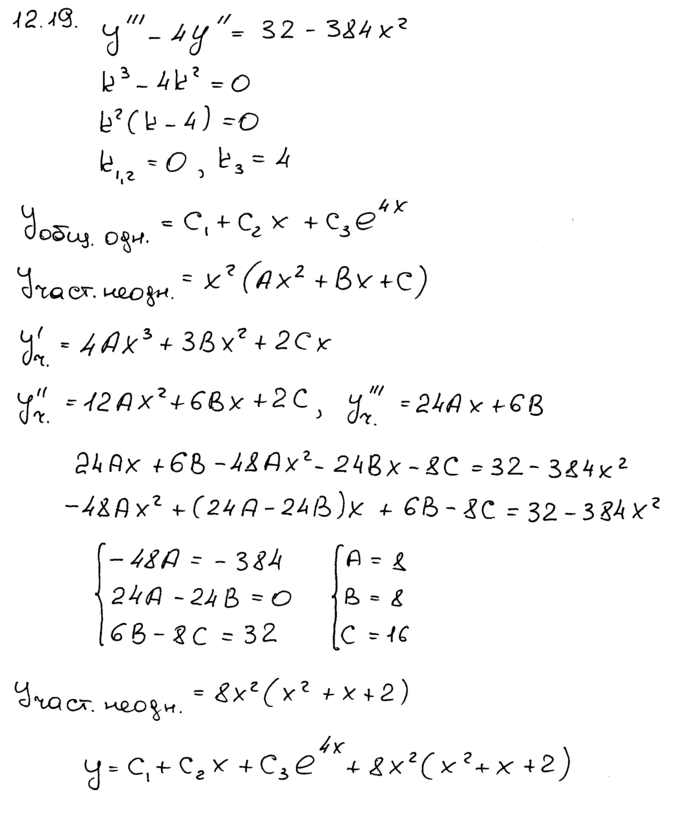 12.19. y''' - 4y'' = 32 - 384x²
k³ - 4k² = 0
k²(k - 4) = 0
k₁,₂ = 0, k₃ = 4
Yобщ. одн. = C₁ + C₂x + C₃e^(4x)
Yчаст. неодн. = x²(Ax² + Bx + C)
y'ч. = 4Ax³ + 3Bx² + 2Cx
y''ч. = 12Ax² + 6Bx + 2C, y'''ч. = 24Ax + 6B
24Ax + 6B - 48Ax² - 24Bx - 8C = 32 - 384x²
-48Ax² + (24A - 24B)x + 6B - 8C = 32 - 384x²
{ -48A = -384 { A = 8
24A - 24B = 0 B = 8
6B - 8C = 32 C = 16
Yчаст. неодн. = 8x²(x² + x + 2)
y = C₁ + C₂x + C₃e^(4x) + 8x²(x² + x + 2)